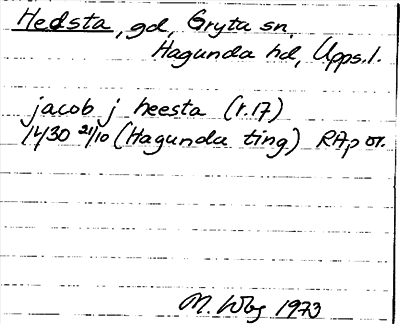 Hedsta, gd, Gryta sn,
Hagunda hd, Upps.l.
jacob j heesta (r.17)
1430 21/10 (Hagunda ting) RAp or.
M. Wbg 1973